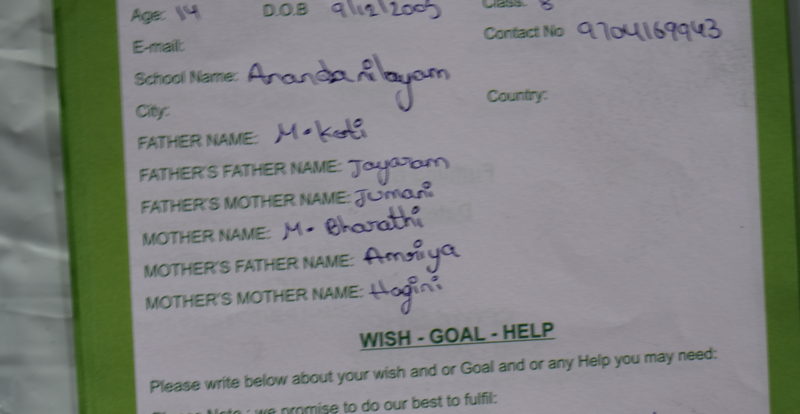 Age: 14 D.O.B 9/12/2005 Class: 8
E-mail: Contact No 9704169943
School Name: Anandanilayam
City: Country:
FATHER NAME: M. Koti
FATHER'S FATHER NAME: Jayaram
FATHER'S MOTHER NAME: Jumani
MOTHER NAME: M. Bharathi
MOTHER'S FATHER NAME: Amriya
MOTHER'S MOTHER NAME: Hagini
WISH - GOAL - HELP
Please write below about your wish and or Goal and or any Help you may need:
Please Note : we promise to do our best to fulfil: